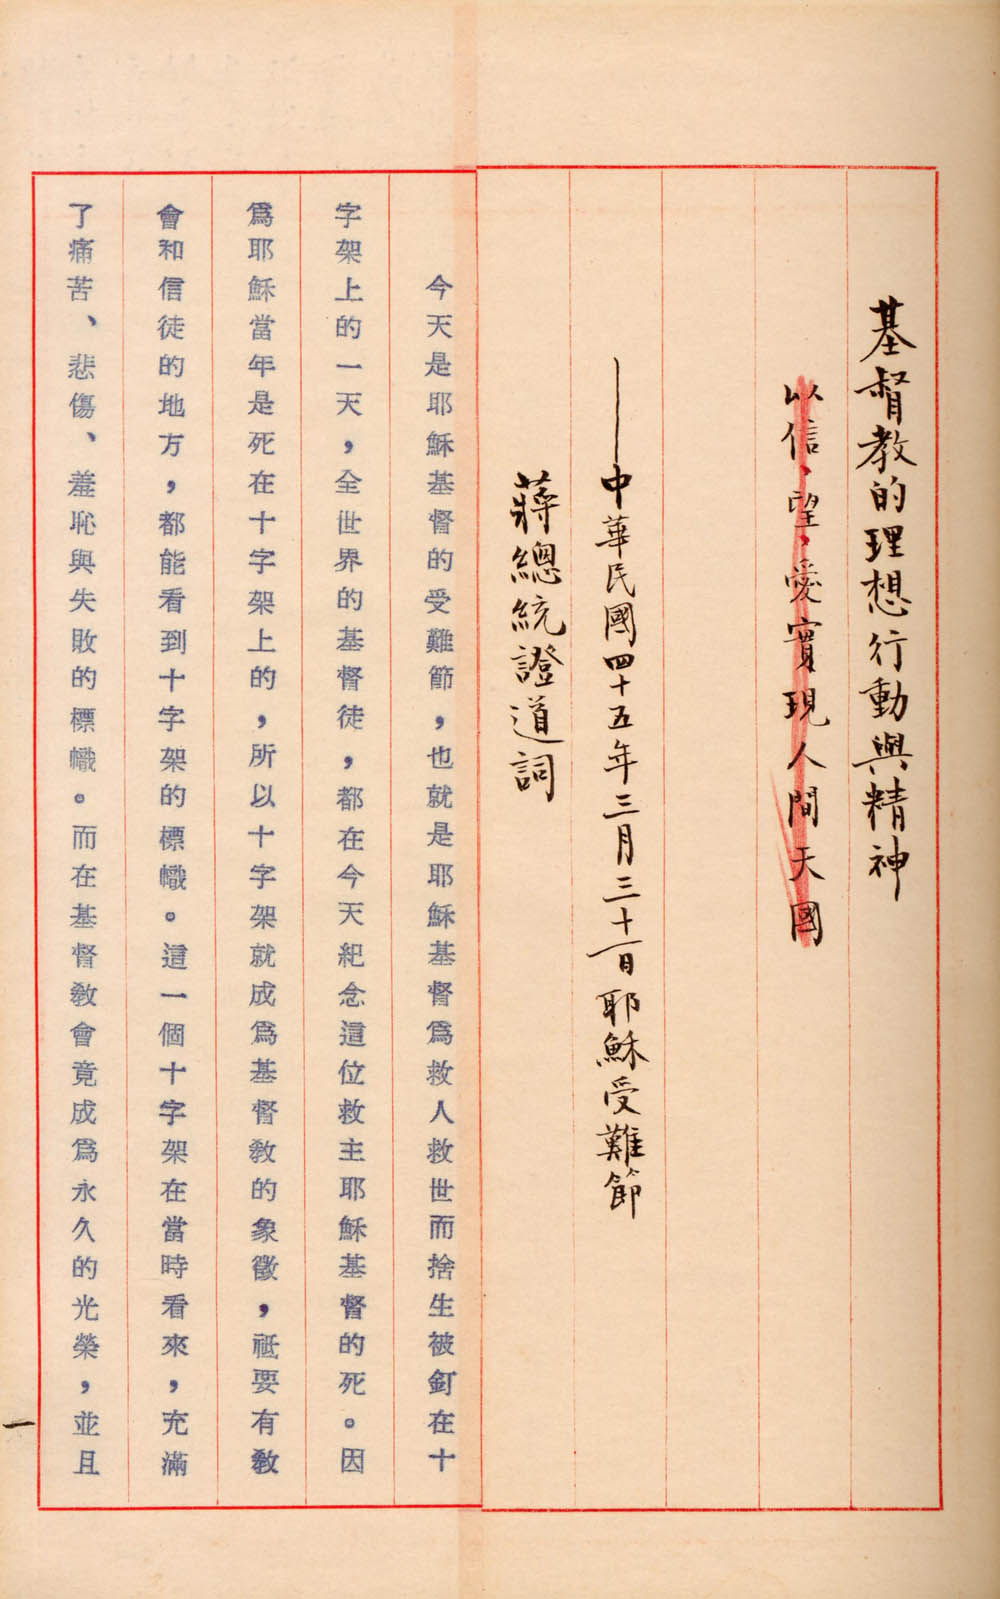 基督教的理想行動與精神
以信、望、愛實現人間天國
——中華民國四十五年三月三十一日耶穌受難節
蔣總統證道詞
今天是耶穌基督的受難節，也就是耶穌基督為救人救世而捨生被釘在十
字架上的一天，全世界的基督徒，都在今天紀念這位救主耶穌基督的死。因
為耶穌當年是死在十字架上的，所以十字架就成為基督教的象徵，祗要有教
會和信徒的地方，都能看到十字架的標幟。這一個十字架在當時看來，充滿
了痛苦、悲傷、羞恥與失敗的標幟。而在基督教會竟成為永久的光榮，並且
一